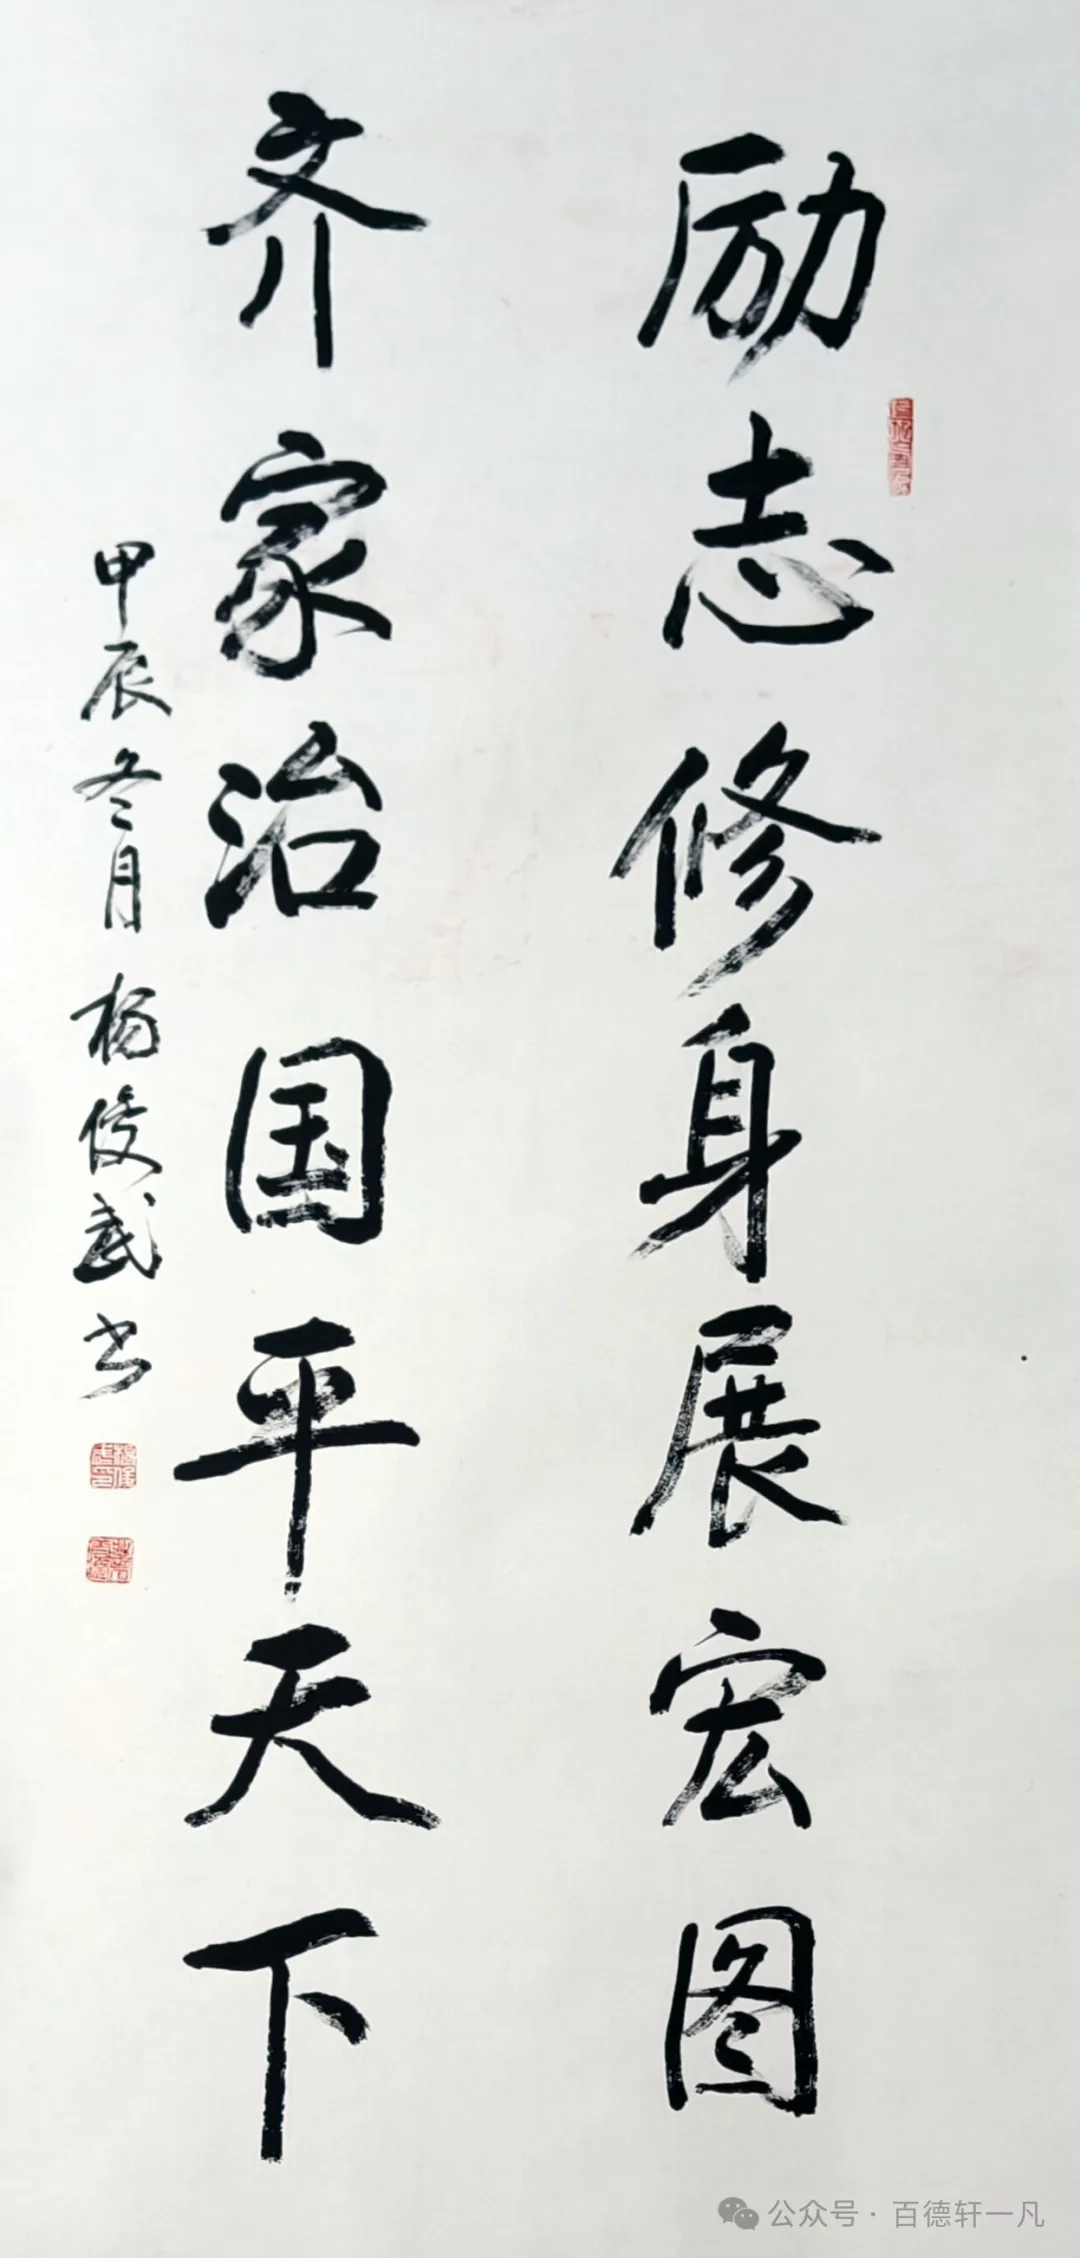 励志修身展宏图
齐家治国平天下
甲辰冬月 杨俊武书
公众号·百德轩一凡